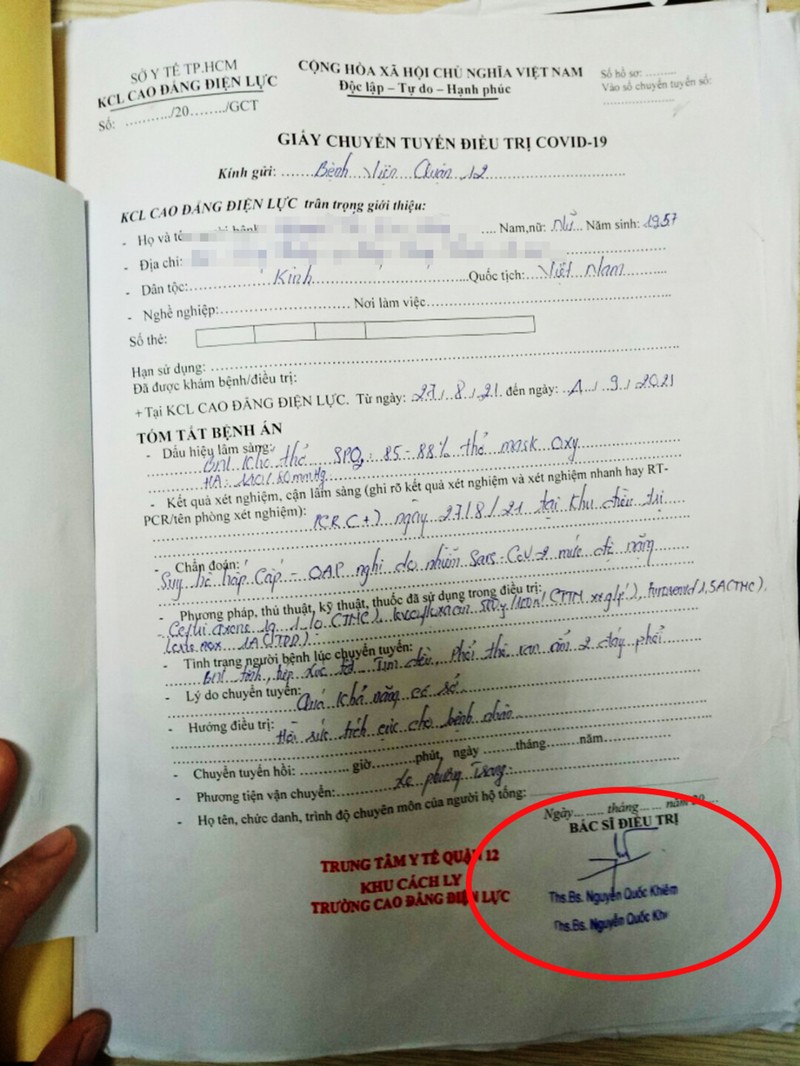 SỞ Y TẾ TP.HCM
KCL CAO ĐẲNG ĐIỆN LỰC
Số: ........../20......../GCT
CỘNG HÒA XÃ HỘI CHỦ NGHĨA VIỆT NAM
Độc lập – Tự do – Hạnh phúc
Số hồ sơ: .........
Vào sổ chuyển tuyến số:
GIẤY CHUYỂN TUYẾN ĐIỀU TRỊ COVID-19
Kính gửi: Bệnh viện Quận 12
KCL CAO ĐẲNG ĐIỆN LỰC trân trọng giới thiệu:
- Họ và tên Nam,nữ: Nữ Năm sinh: 1957
- Địa chỉ:
- Dân tộc: Kinh Quốc tịch: Việt Nam
- Nghề nghiệp: Nơi làm việc
Số thẻ:
Hạn sử dụng:
Đã được khám bệnh/điều trị:
+ Tại KCL CAO ĐẲNG ĐIỆN LỰC. Từ ngày: 27/8/21 đến ngày: 1/9/2021
TÓM TẮT BỆNH ÁN
- Dấu hiệu lâm sàng:
BN khó thở SPO2: 85-88% thở mask oxy
HA: mmHg
- Kết quả xét nghiệm, cận lâm sàng (ghi rõ kết quả xét nghiệm và xét nghiệm nhanh hay RT-
PCR/tên phòng xét nghiệm): PCR (+) ngày 27/8/21 tại khu điều trị
- Chẩn đoán:
Suy hô hấp cấp - OAP nghi do nhiễm Sars-CoV-2 mức độ nặng
- Phương pháp, thủ thuật, kỹ thuật, thuốc đã sử dụng trong điều trị:
- Tình trạng người bệnh lúc chuyển tuyến:
BN tỉnh, tiếp xúc tốt Tim đều, Phổi thô ran ẩm 2 đáy phổi
- Lý do chuyển tuyến:
Quá khả năng cơ sở
- Hướng điều trị:
Hồi sức tích cực cho bệnh nhân
- Chuyển tuyến hồi: ............ giờ..........phút, ngày ........tháng.........năm............
- Phương tiện vận chuyển: Xe phương trang
- Họ tên, chức danh, trình độ chuyên môn của người hộ tống:
Ngày........ tháng...... năm 20....
BÁC SĨ ĐIỀU TRỊ
TRUNG TÂM Y TẾ QUẬN 12
KHU CÁCH LY
TRƯỜNG CAO ĐẲNG ĐIỆN LỰC
Ths.Bs. Nguyễn Quốc Khiêm
Ths.Bs. Nguyễn Quốc Kh